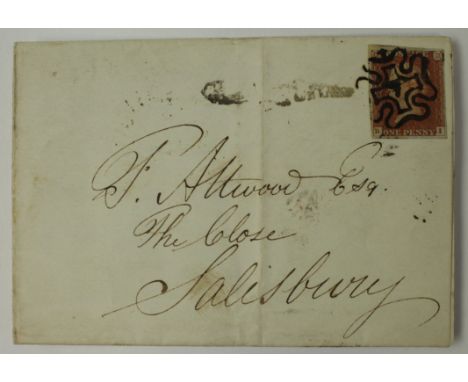 ONE PENNY
T. Attwood Esq.
The Close
Salisbury